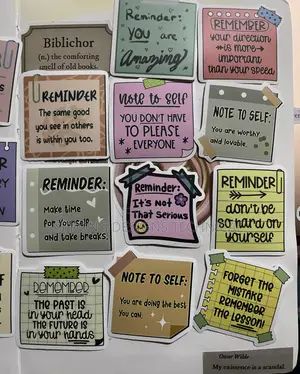 Biblichor
(n.) the comforting
smell of old books.
Reminder:
YOU are
Amazing!
REMEMBER
your direction
is more
important
than your speed
REMINDER
The same good
you see in others
is within you too.
Note to Self
YOU DON'T HAVE
TO PLEASE
EVERYONE
NOTE TO SELF:
You are worthy
and lovable.
REMINDER:
Make time
for yourself
and take breaks.
Reminder:
IT'S NOT
THAT SERIOUS
REMINDER
don't be
so hard on
yourself
REMEMBER
THE PAST IS
IN your HEAD
THE FUTURE IS
IN your HANDS
NOTE TO SELF:
You are doing the best
you can.
FORGET THE
MISTAKE
REMEMBER
THE LESSON!
Oscar Wilde
My existence is a scandal.